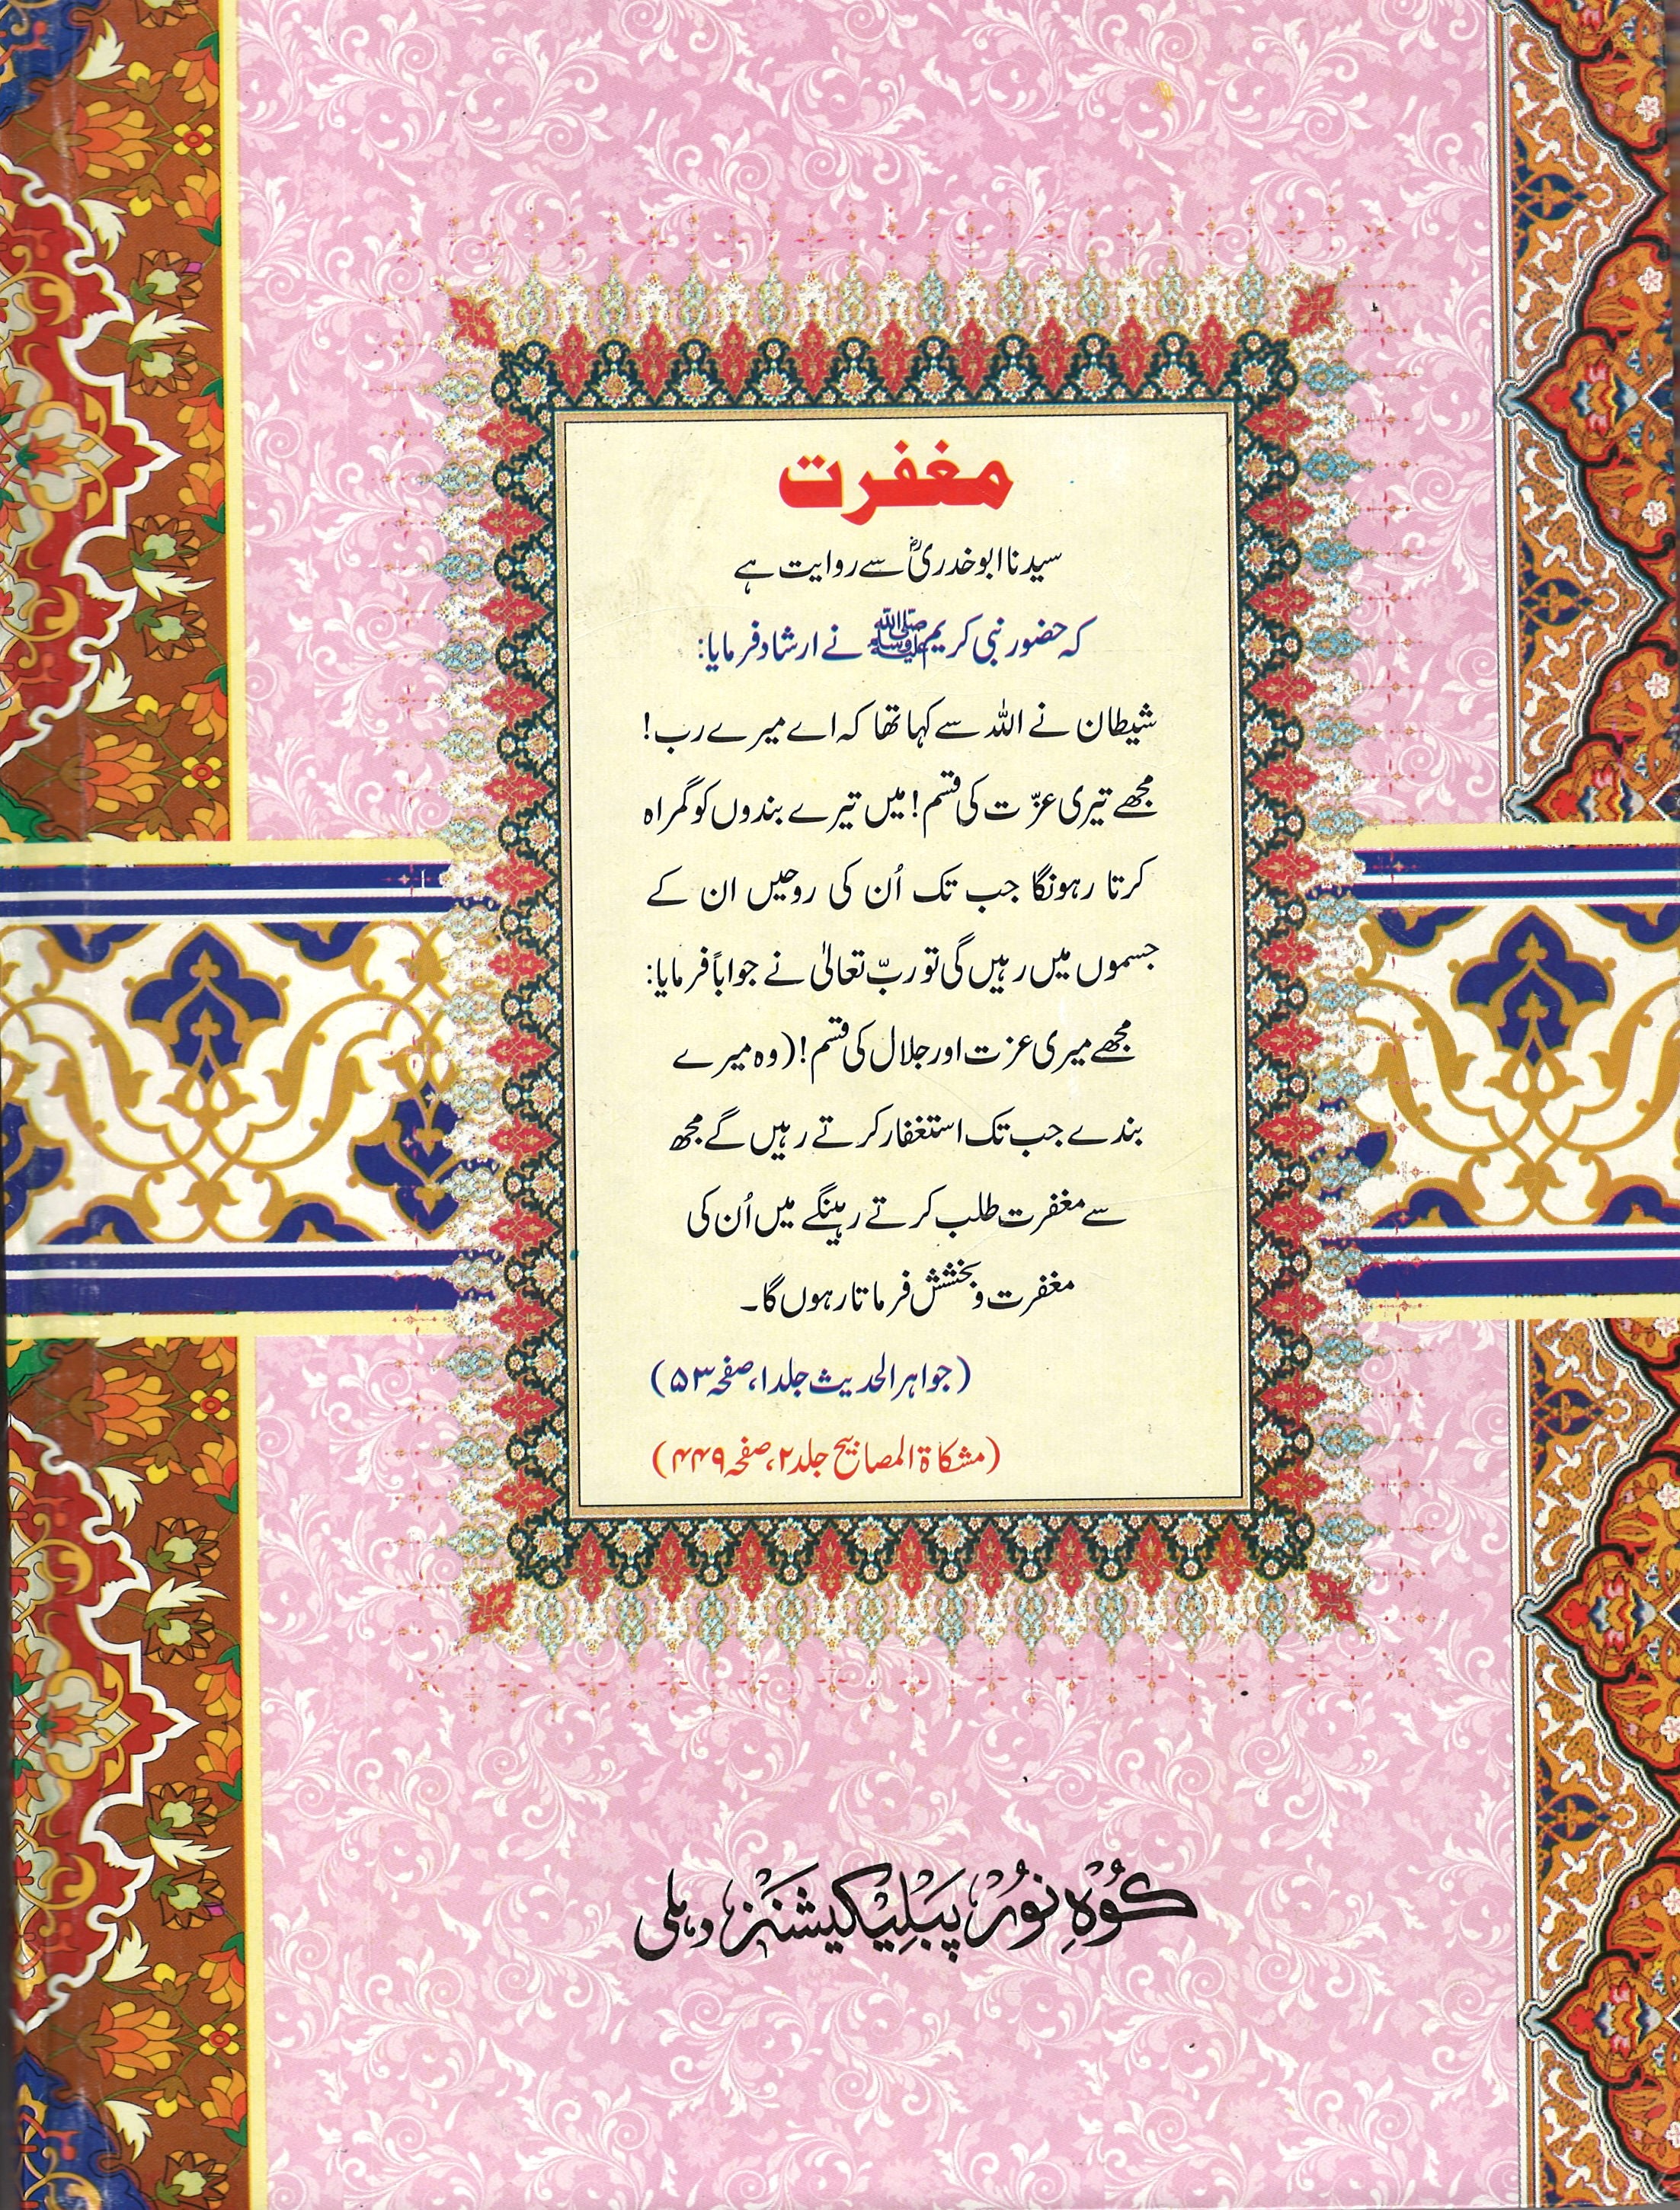 مغفرت
سیدنا ابوخدریؓ سے روایت ہے
کہ حضور نبی کریم ﷺ نے ارشاد فرمایا:
شیطان نے اللہ سے کہا تھا کہ اے میرے رب!
مجھے تیری عزّت کی قسم! میں تیرے بندوں کو گمراہ
کرتا رہونگا جب تک اُن کی روحیں ان کے
جسموں میں رہیں گی تو ربّ تعالیٰ نے جواباً فرمایا:
مجھے میری عزت اور جلال کی قسم! (وہ میرے
بندے جب تک استغفار کرتے رہیں گے مجھ
سے مغفرت طلب کرتے رہینگے میں اُن کی
مغفرت و بخشش فرماتا رہوں گا۔
(جواہر الحدیث جلد ۱، صفحہ ۵۳)
(مشکاۃ المصابیح جلد ۲، صفحہ ۴۴۹)
کُوْہِ نُوْرْ پَبْلِیْکیْشَنْز دہلی